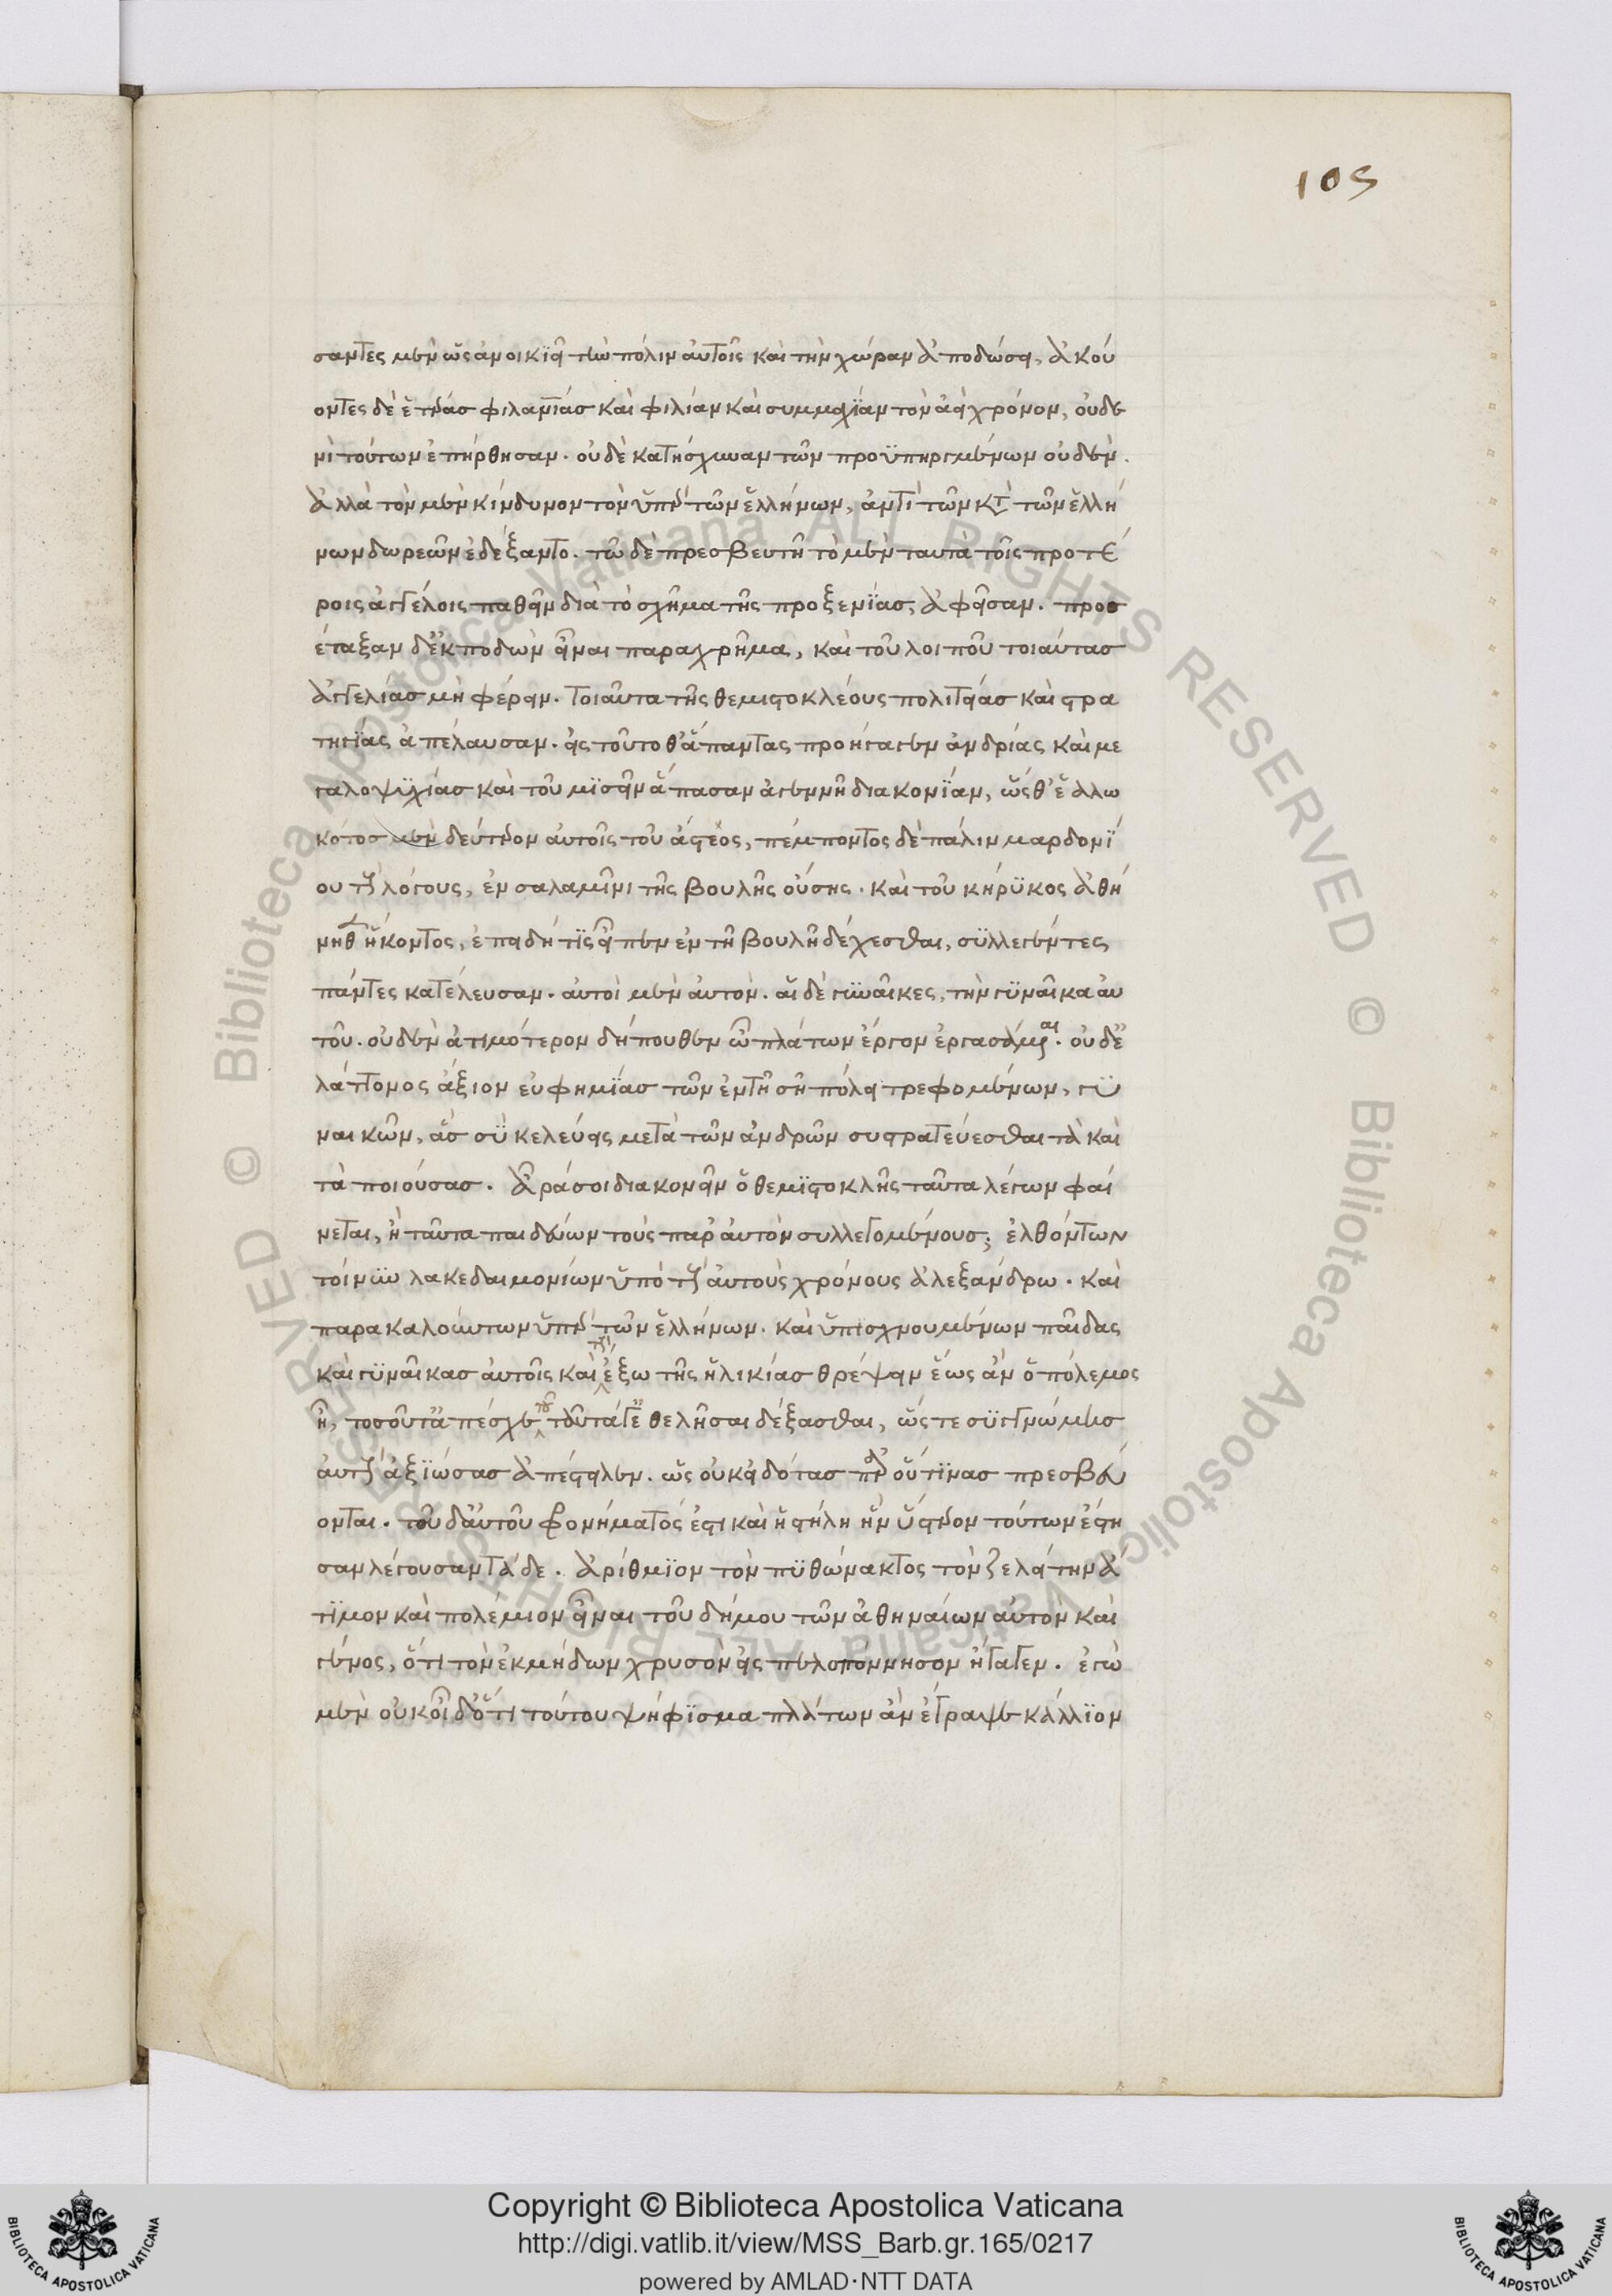 105
σαντες μὲν ὡς ἀνοικιεῖ τὴν πόλιν αὐτοῖς καὶ τὴν χώραν ἀποδώσει, ἀκού
οντες δὲ ἑτέρας φιλανίας καὶ φιλίαν καὶ συμμαχίαν τὸν ἀεὶ χρόνον, οὐδε
νὶ τούτων ἐπήρθησαν. οὐδὲ κατῄσχυναν τῶν προϋπηργμένων οὐδέν.
ἀλλὰ τὸν μὲν κίνδυνον τὸν ὑπὲρ τῶν ἑλλήνων, ἀντὶ τῶν κατὰ τῶν ἑλλή
νων δωρεῶν ἐδέξαντο. τῶ δὲ πρεσβευτῆ τὸ μὲν ταυτὰ τοῖς προτέ
ροις ἀγγέλοις παθεῖν διὰ τὸ σχῆμα τῆς προξενίας, ἀφεῖσαν. προσ
έταξαν δ' ἐκποδὼν εἶναι παραχρῆμα, καὶ τοῦ λοιποῦ τοιαύτας
ἀγγελίας μὴ φέρειν. τοιαῦτα τῆς θεμιστοκλέους πολιτείας καὶ στρα
τηγίας ἀπέλαυσαν. εἰς τοῦτο θ' ἅπαντας προήγαγεν ἀνδρίας καὶ με
γαλοψυχίας καὶ τοῦ μισεῖν ἅπασαν ἀγεννῆ διακονίαν, ὥσθ' ἑαλω
κότος μὲν δεύτερον αὐτοῖς τοῦ ἄστεος, πέμποντος δὲ πάλιν μαρδονί
ου τοὺς λόγους, ἐν σαλαμῖνι τῆς βουλῆς οὔσης. καὶ τοῦ κήρυκος ἀθή
νηθεν ἥκοντος, ἐπειδή τις εἶπεν ἐν τῆ βουλῆ δέχεσθαι, συλλεγέντες
πάντες κατέλευσαν. αὐτοὶ μὲν αὐτόν. αἱ δὲ γυναῖκες, τὴν γυναῖκα αὐ
τοῦ. οὐδὲν ἀτιμότερον δήπουθεν ὦ πλάτων ἔργον ἐργασάμεναι. οὐδ' ἐ
λάττονος ἄξιον εὐφημίας τῶν ἐν τῆ σῆ πόλει τρεφομένων, γυ
ναικῶν, ἃς σὺ κελεύεις μετὰ τῶν ἀνδρῶν συστρατεύεσθαι τὰ καὶ
τὰ ποιούσας. ἆρά σοι διακονεῖν ὁ θεμιστοκλῆς ταῦτα λέγων φαί
νεται, ἢ ταῦτα παιδεύων τοὺς παρ' αὐτὸν συλλεγομένους; ἐλθόντων
τοίνυν λακεδαιμονίων ὑπὸ τοὺς αὐτοὺς χρόνους ἀλεξάνδρω. καὶ
παρακαλούντων ὑπὲρ τῶν ἑλλήνων. καὶ ὑπισχνουμένων παῖδας
καὶ γυναῖκας αὐτοῖς καὶ τοὺς ἔξω τῆς ἡλικίας θρέψειν ἕως ἂν ὁ πόλεμος
ἦ, τοσοῦτ' ἀπέσχε τοῦ ταῦτά γ' ἐθελῆσαι δέξασθαι, ὥστε συγγνώμης
αὐτοὺς ἀξιώσας ἀπέστειλεν. ὡς οὐκ εἰδότας παρ' οὕστινας πρεσβεύ
ονται. τοῦ δ' αὐτοῦ φρονήματός ἐστι καὶ ἡ στήλη ἣν ὕστερον τούτων ἔστη
σαν λέγουσαν τάδε. ἀρίθμιον τὸν πυθώνακτος τὸν ζελείτην ἄ
τιμον καὶ πολέμιον εἶναι τοῦ δήμου τῶν ἀθηναίων αὐτὸν καὶ
γένος, ὅτι τὸν ἐκ μήδων χρυσὸν εἰς πελοπόννησον ἤγαγεν. ἐγὼ
μὲν οὐκ οἶδ' ὅτι τούτου ψήφισμα πλάτων ἂν ἔγραψε κάλλιον
Copyright © Biblioteca Apostolica Vaticana
http://digi.vatlib.it/view/MSS_Barb.gr.165/0217
powered by AMLAD·NTT DATA